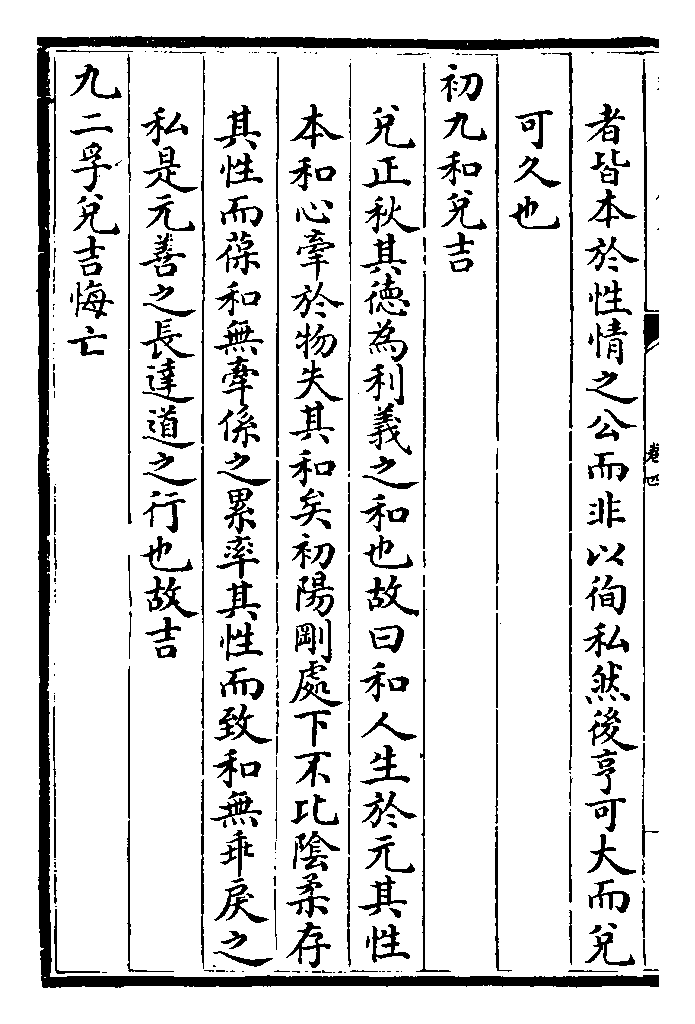 者皆本於性情之公而非以徇私然後亨可大而兌
可久也
初九和兌吉
兌正秋其德為利義之和也故曰和人生於元其性
本和心牽於物失其和矣初陽剛處下不比陰柔存
其性而葆和無牽係之累率其性而致和無乖戾之
私是元善之長達道之行也故吉
九二孚兌吉悔亡
卷四